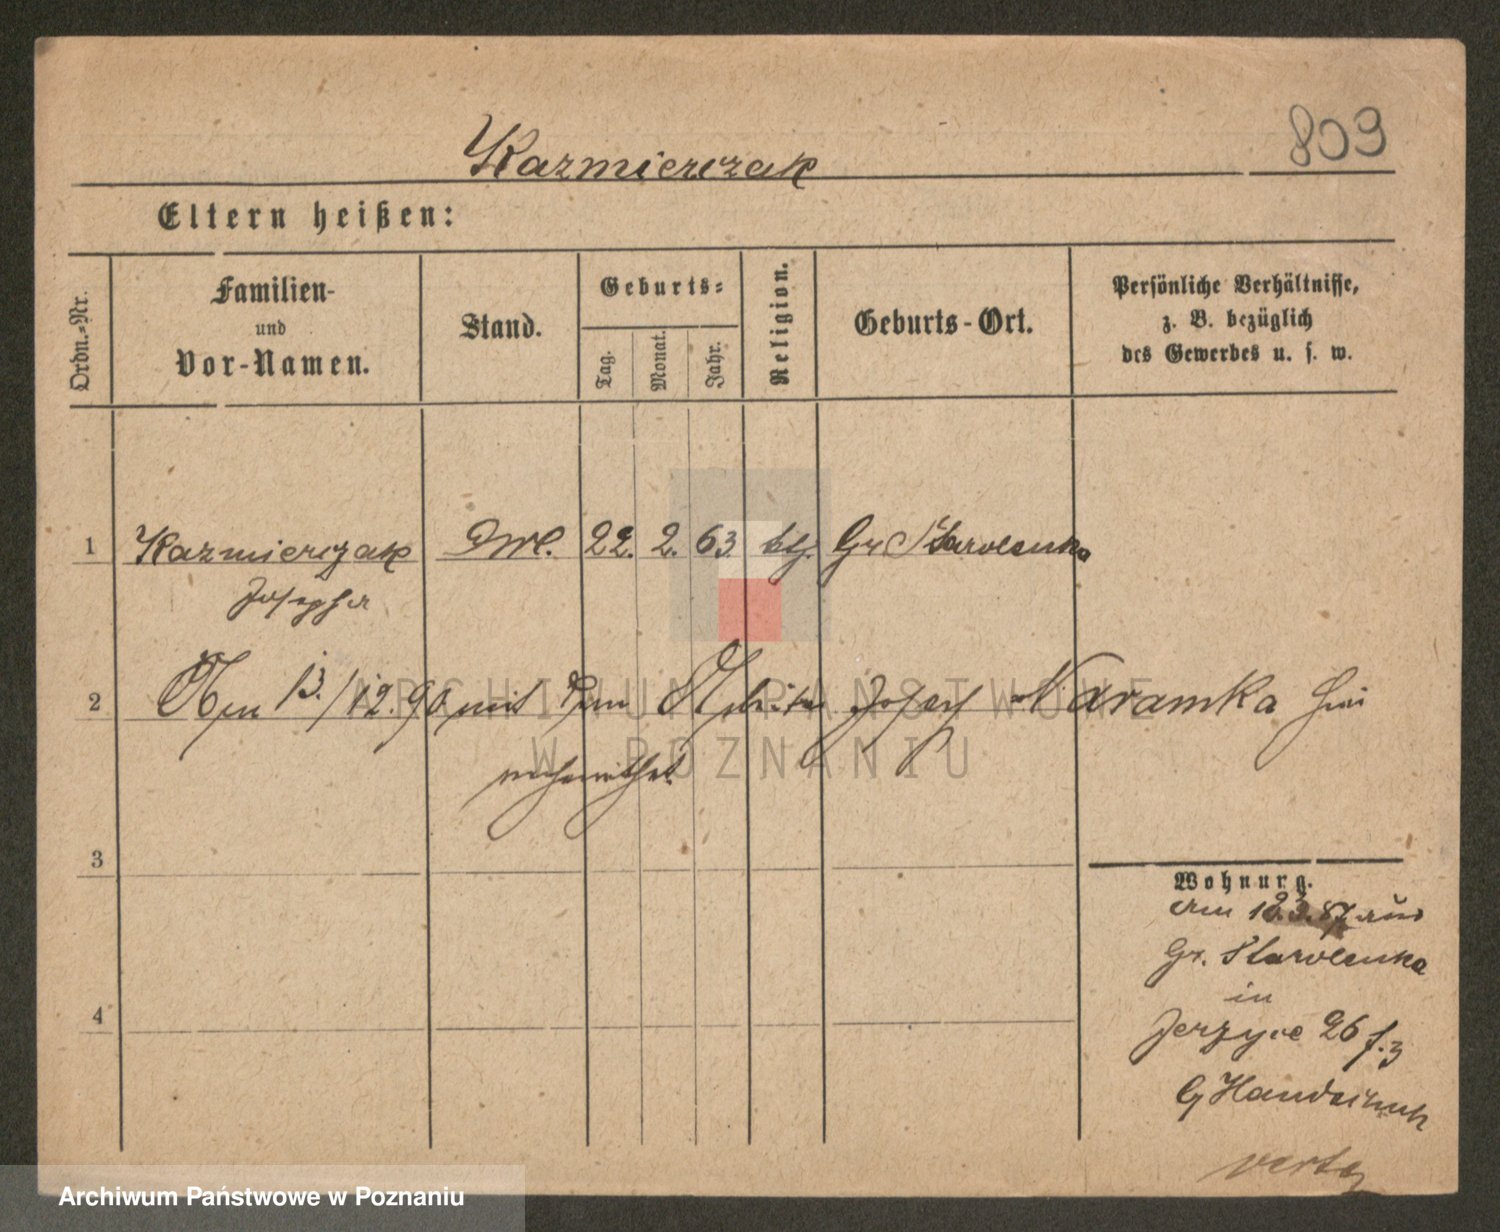 809
Kazmierczak
Eltern heißen:
Ordn.-Nr.
Familien-
und
Vor-Namen.
Stand.
Geburts-
Tag.
Monat.
Jahr.
Religion.
Geburts-Ort.
Persönliche Verhältnisse,
z. B. bezüglich
des Gewerbes u. s. w.
1 Kazmierczak 22. 2. 63. ktl. Gr Starolenka
Josepha
2 Am 13./12. 90 mit dem Arbeiter Josef Naramka hier
verheirathet
3
4
Wohnung.
am 18.3.87 aus
Gr. Starolenka
in
Jerzyce 26 f. z
Handschuh
verte
ARCHIWUM PAŃSTWOWE
W POZNANIU
Archiwum Państwowe w Poznaniu